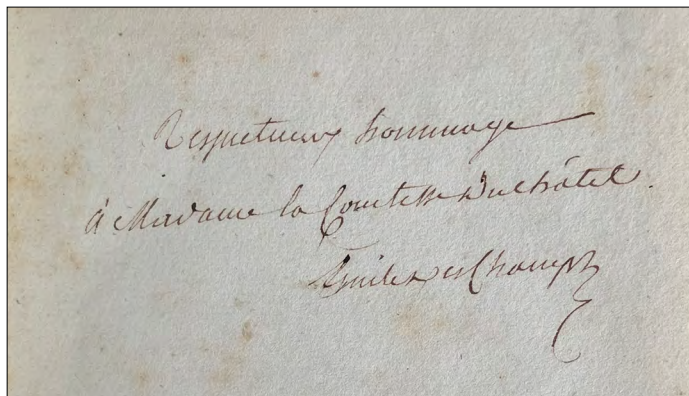 Respectueux hommage
à Madame la Comtesse Duchâtel.
Emile Deschamps